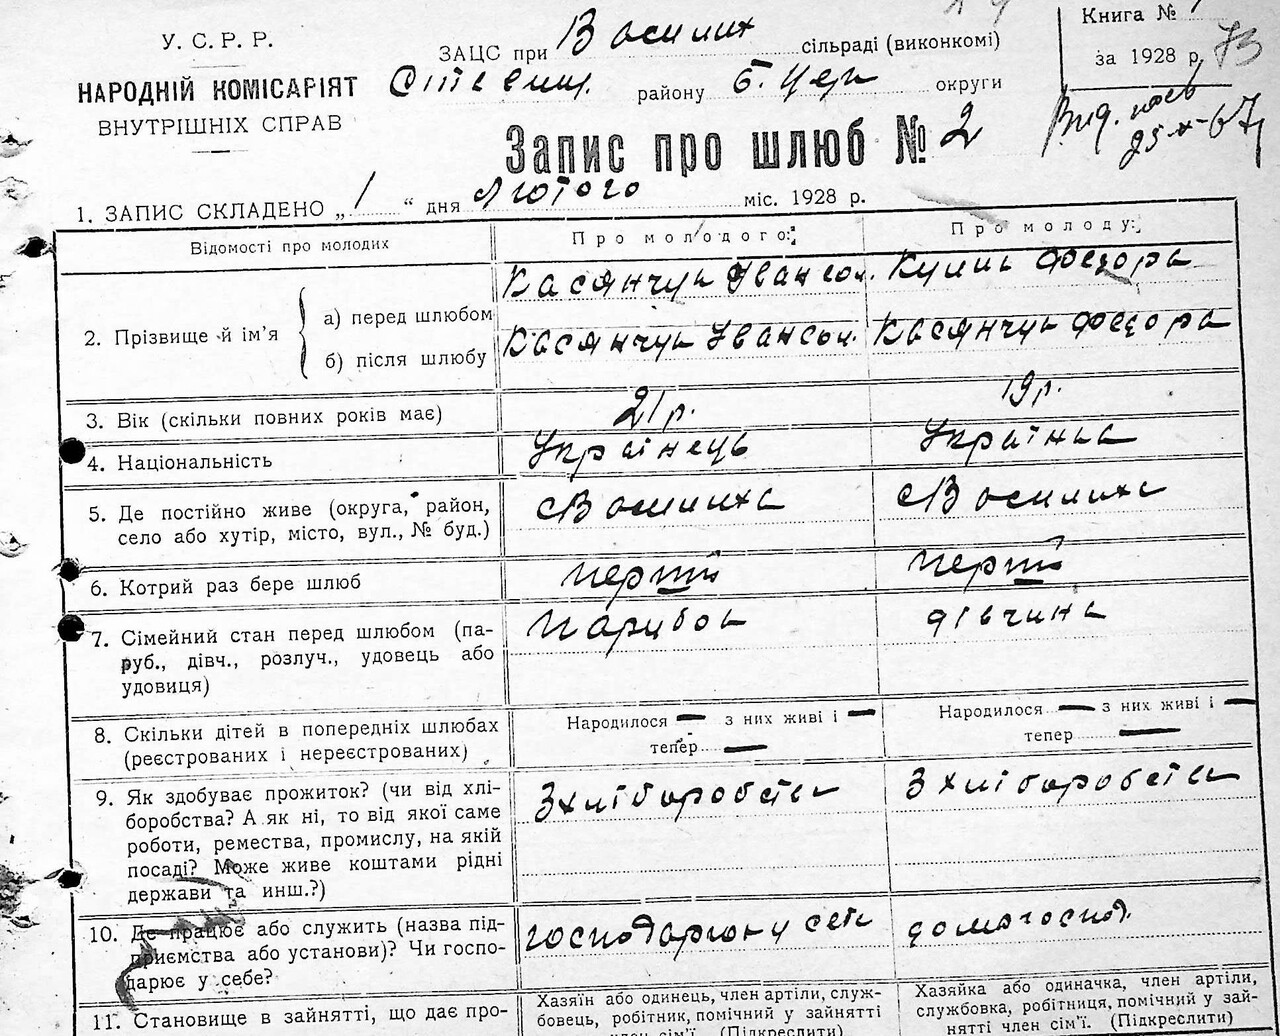 У. С. Р. Р.
НАРОДНІЙ КОМІСАРІЯТ
ВНУТРІШНІХ СПРАВ
ЗАЦС при Василих сільраді (виконкомі)
району Б. Церк округи
Книга №
за 1928 р. 73
Запис про шлюб № 2
1. ЗАПИС СКЛАДЕНО „ 1 “ дня Лютого міс. 1928 р.
Відомості про молодих
Про молодого:
Про молоду:
2. Прізвище й ім’я
а) перед шлюбом
Касянчук
Федора
б) після шлюбу
Касянчук
Касянчук Федора
3. Вік (скільки повних років має)
21 р.
19 р.
4. Національність
Українець
Українка
5. Де постійно живе (округа, район,
село або хутір, місто, вул., № буд.)
с Василиха
с Василиха
6. Котрий раз бере шлюб
перший
перший
7. Сімейний стан перед шлюбом (па-
руб., дівч., розлуч., удовець або
удовиця)
Парубок
дівчина
8. Скільки дітей в попередніх шлюбах
(реєстрованих і нереєстрованих)
Народилося — з них живі і —
тепер —
Народилося — з них живі і —
тепер —
9. Як здобуває прожиток? (чи від хлі-
боробства? А як ні, то від якої саме
роботи, ремества, промислу, на якій
посаді? Може живе коштами рідні
держави та инш.?)
З хліборобства
З хліборобства
10. Де працює або служить (назва під-
приємства або установи)? Чи госпо-
дарює у себе?
у себе
домогоспод.
11. Становище в зайнятті, що дає про-
Хазяїн або одинець, член артіли, служ-
бовець, робітник, помічний у зайнятті
член сім’ї. (Підкреслити)
Хазяйка або одиначка, член артіли,
службовка, робітниця, помічний у зай-
нятті член сім’ї. (Підкреслити)